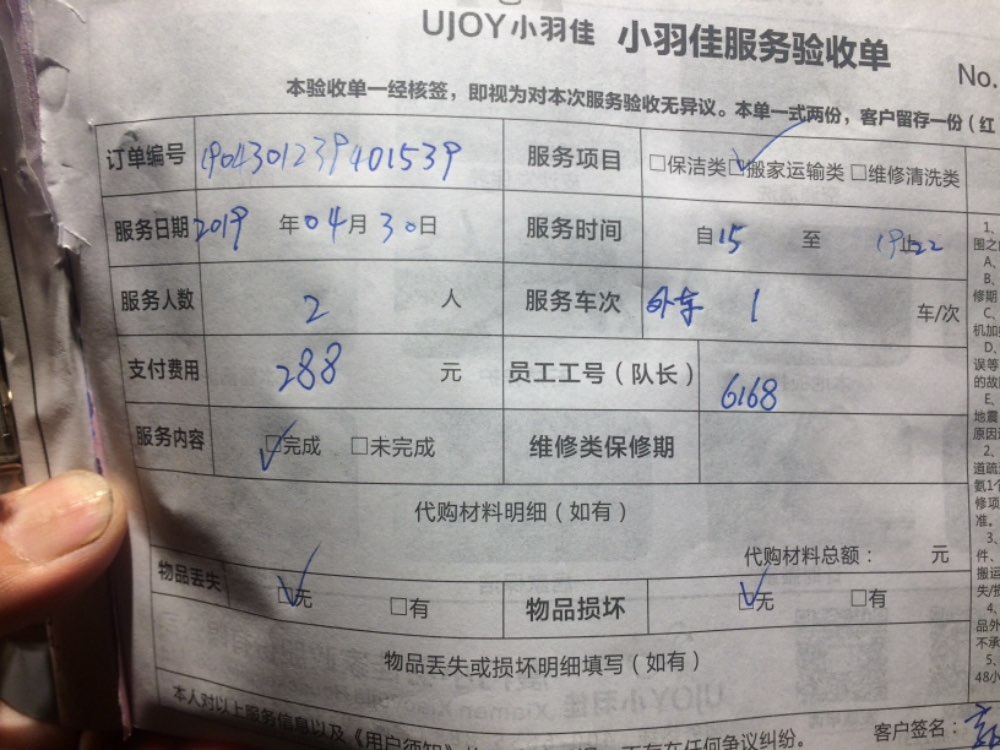 UJOY小羽佳 小羽佳服务验收单
No.
本验收单一经核签，即视为对本次服务验收无异议。本单一式两份，客户留存一份（红
订单编号 190430123940​1539 服务项目 □保洁类 ☑搬家运输类 □维修清洗类
服务日期 2019 年 04 月 30 日 服务时间 自 15 至 19 止 22
服务人数 2 人 服务车次 外车 1 车/次
支付费用 288 元 员工工号（队长） 6168
服务内容 ☑完成 □未完成 维修类保修期
代购材料明细（如有）
代购材料总额： 元
物品丢失 ☑无 □有 物品损坏 ☑无 □有
物品丢失或损坏明细填写（如有）
本人对以上服务信息以及《用户须知》
存在任何争议纠纷。
客户签名：
1、
围之
A、
B、
修期
C、
机加
D、
误等
的故
E、
地震
原因
2、
道疏
氨1个
修项
准。
3、
件、
搬运
失/损
4、
品外
不承
5、
48小